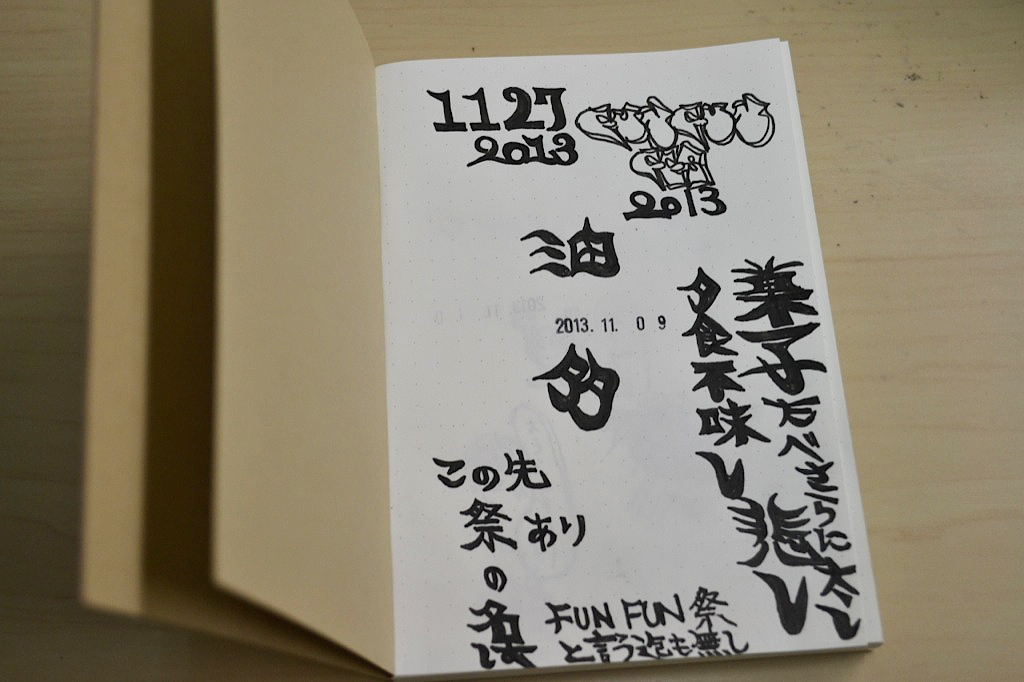 1127
2013
2013
油
2013. 11. 0 9
菓子たべさらに太し
夕食不味し
悲し
この先
祭あり
の
FUN FUN 祭
と言う迄も無し